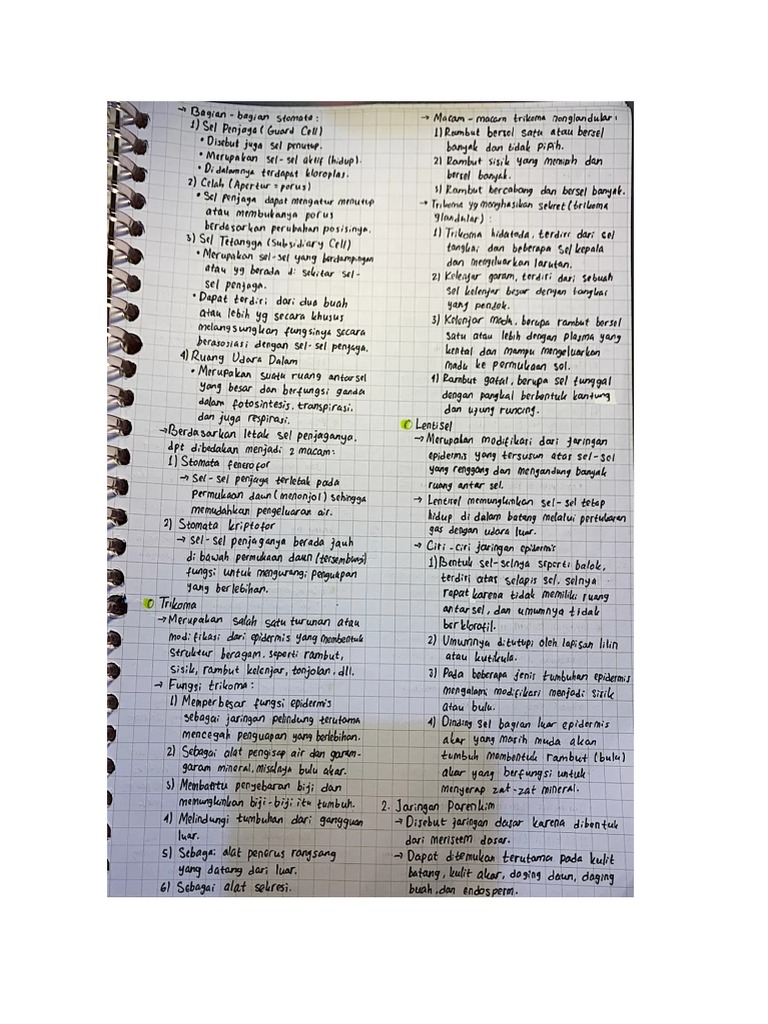 → Bagian-bagian stomata:
1) Sel Penjaga (Guard Cell)
• Disebut juga sel penutup.
• Merupakan sel-sel aktif (hidup).
• Di dalamnya terdapat kloroplas.
2) Celah (Apertur = porus)
• Sel penjaga dapat mengatur menutup
atau membukanya porus
berdasarkan perubahan posisinya.
3) Sel Tetangga (Subsidiary Cell)
• Merupakan sel-sel yang berdampingan
atau yg berada di sekitar sel-
sel penjaga.
• Dapat terdiri dari dua buah
atau lebih yg secara khusus
melangsungkan fungsinya secara
berasosiasi dengan sel-sel penjaga.
4) Ruang Udara Dalam
• Merupakan suatu ruang antarsel
yang besar dan berfungsi ganda
dalam fotosintesis, transpirasi,
dan juga respirasi.
→ Berdasarkan letak sel penjaganya,
dpt dibedakan menjadi 2 macam:
1) Stomata fenerofor
→ Sel-sel penjaga terletak pada
Permukaan daun (menonjol) sehingga
memudahkan pengeluaran air.
2) Stomata kriptofor
→ sel-sel penjaganya berada jauh
di bawah permukaan daun (tersembunyi)
fungsi untuk mengurangi penguapan
yang berlebihan.
Trikoma
→ Merupakan salah satu turunan atau
modifikasi dari epidermis yang membentuk
struktur beragam, seperti rambut,
sisik, rambut kelenjar, tonjolan, dll.
→ Fungsi trikoma:
1) Memperbesar fungsi epidermis
sebagai jaringan pelindung terutama
mencegah penguapan yang berlebihan.
2) Sebagai alat pengisap air dan garam-
garam mineral, misalnya bulu akar.
3) Membantu penyebaran biji dan
memungkinkan biji-biji itu tumbuh.
4) Melindungi tumbuhan dari gangguan
luar.
5) Sebagai alat penerus rangsang
yang datang dari luar.
6) Sebagai alat sekresi.
→ Macam-macam trikoma nonglandular:
1) Rambut bersel satu atau bersel
banyak dan tidak pipih.
2) Rambut sisik yang memipih dan
bersel banyak.
3) Rambut bercabang dan bersel banyak.
→ Trikoma yg menghasilkan sekret (trikoma
glandular):
1) Trikoma hidatoda, terdiri dari sel
tangkai dan beberapa sel kepala
dan mengeluarkan larutan.
2) Kelenjar garam, terdiri dari sebuah
sel kelenjar besar dengan tangkai
yang pendek.
3) Kelenjar madu, berupa rambut bersel
satu atau lebih dengan plasma yang
kental dan mampu mengeluarkan
madu ke permukaan sel.
4) Rambut gatal, berupa sel tunggal
dengan pangkal berbentuk kantung
dan ujung runcing.
Lentisel
→ Merupakan modifikasi dari jaringan
epidermis yang tersusun atas sel-sel
yang renggang dan mengandung banyak
ruang antar sel.
→ Lentisel memungkinkan sel-sel tetap
hidup di dalam batang melalui pertukaran
gas dengan udara luar.
→ Ciri-ciri jaringan epidermis
1) Bentuk sel-selnya seperti balok,
terdiri atas selapis sel, selnya
rapat karena tidak memiliki ruang
antar sel, dan umumnya tidak
berklorofil.
2) Umumnya ditutupi oleh lapisan lilin
atau kutikula.
3) Pada beberapa jenis tumbuhan epidermis
mengalami modifikasi menjadi sisik
atau bulu.
4) Dinding sel bagian luar epidermis
akar yang masih muda akan
tumbuh membentuk rambut (bulu)
akar yang berfungsi untuk
menyerap zat-zat mineral.
2. Jaringan Parenkim
→ Disebut jaringan dasar karena dibentuk
dari meristem dasar.
→ Dapat ditemukan terutama pada kulit
batang, kulit akar, daging daun, daging
buah, dan endosperm.